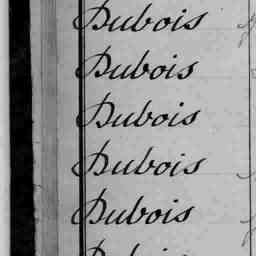 Dubois
Dubois
Dubois
Dubois
Dubois